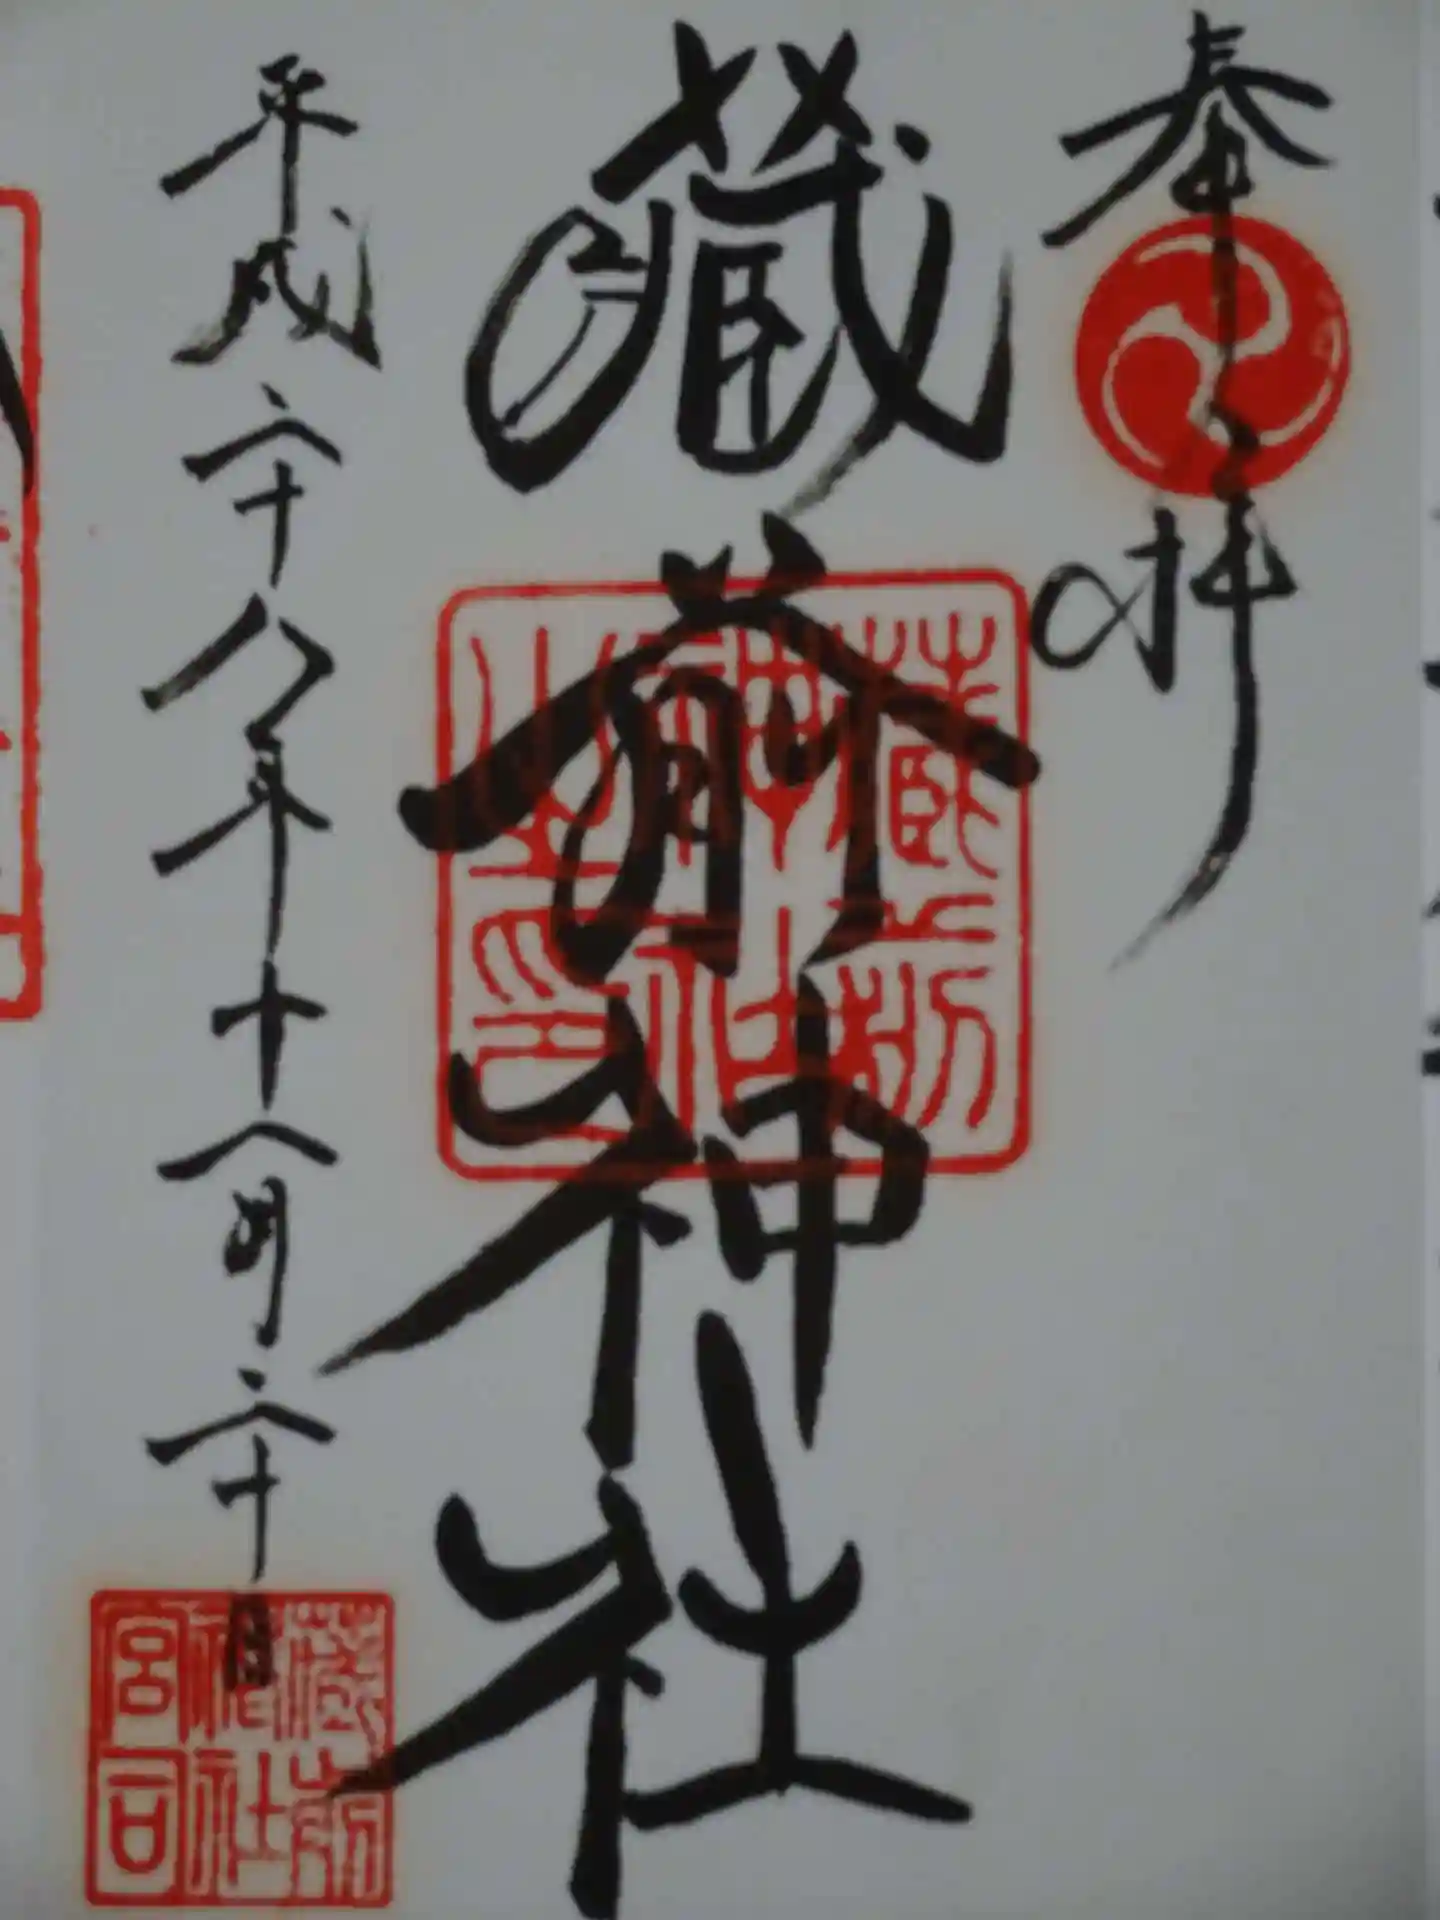 奉拝
藏前神社
藏前神社之印
平成二十八年十一月二十日
藏前神社宮司